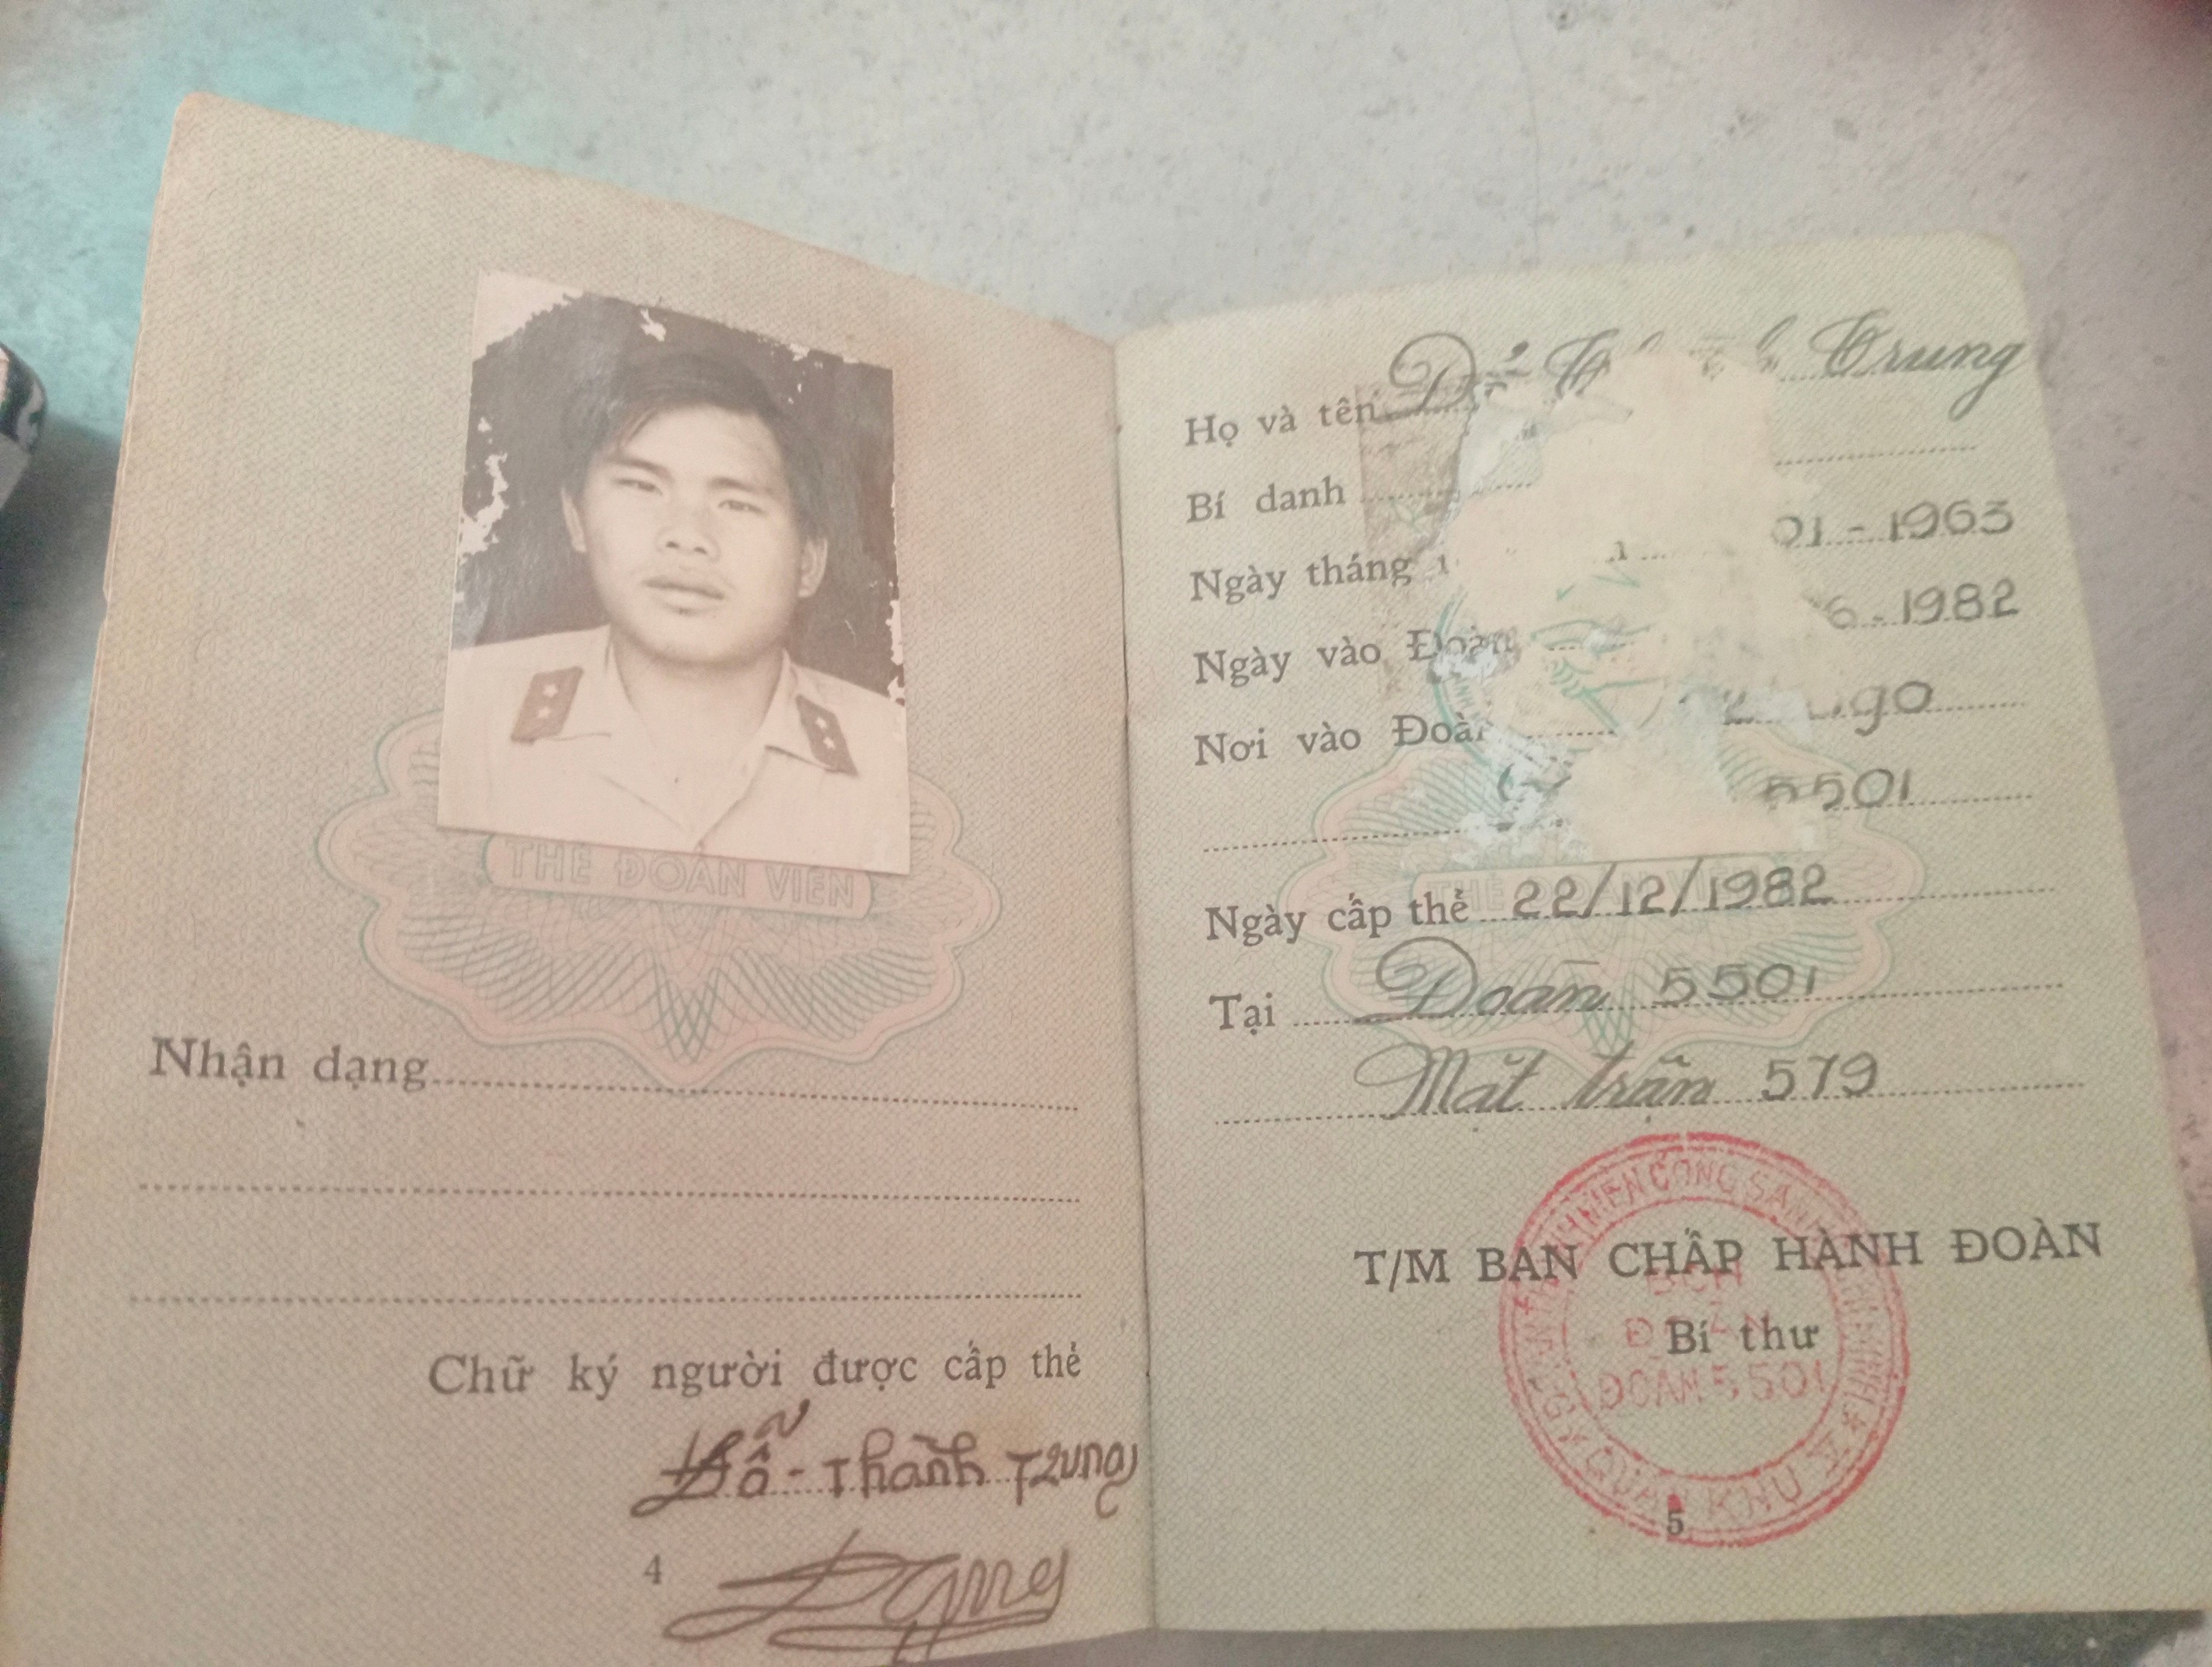 THẺ ĐOÀN VIÊN
Nhận dạng
Chữ ký người được cấp thẻ
Đỗ - Thành Trung
4
Họ và tên Đỗ Trung
Bí danh
Ngày tháng 01 - 1963
Ngày vào Đoàn 6 - 1982
Nơi vào Đoàn
5501
Ngày cấp thẻ 22/12/1982
Tại Đoàn 5501
Mặt trận 579
T/M BAN CHẤP HÀNH ĐOÀN
Bí thư
ĐOÀN 5501
QUÂN KHU V
5